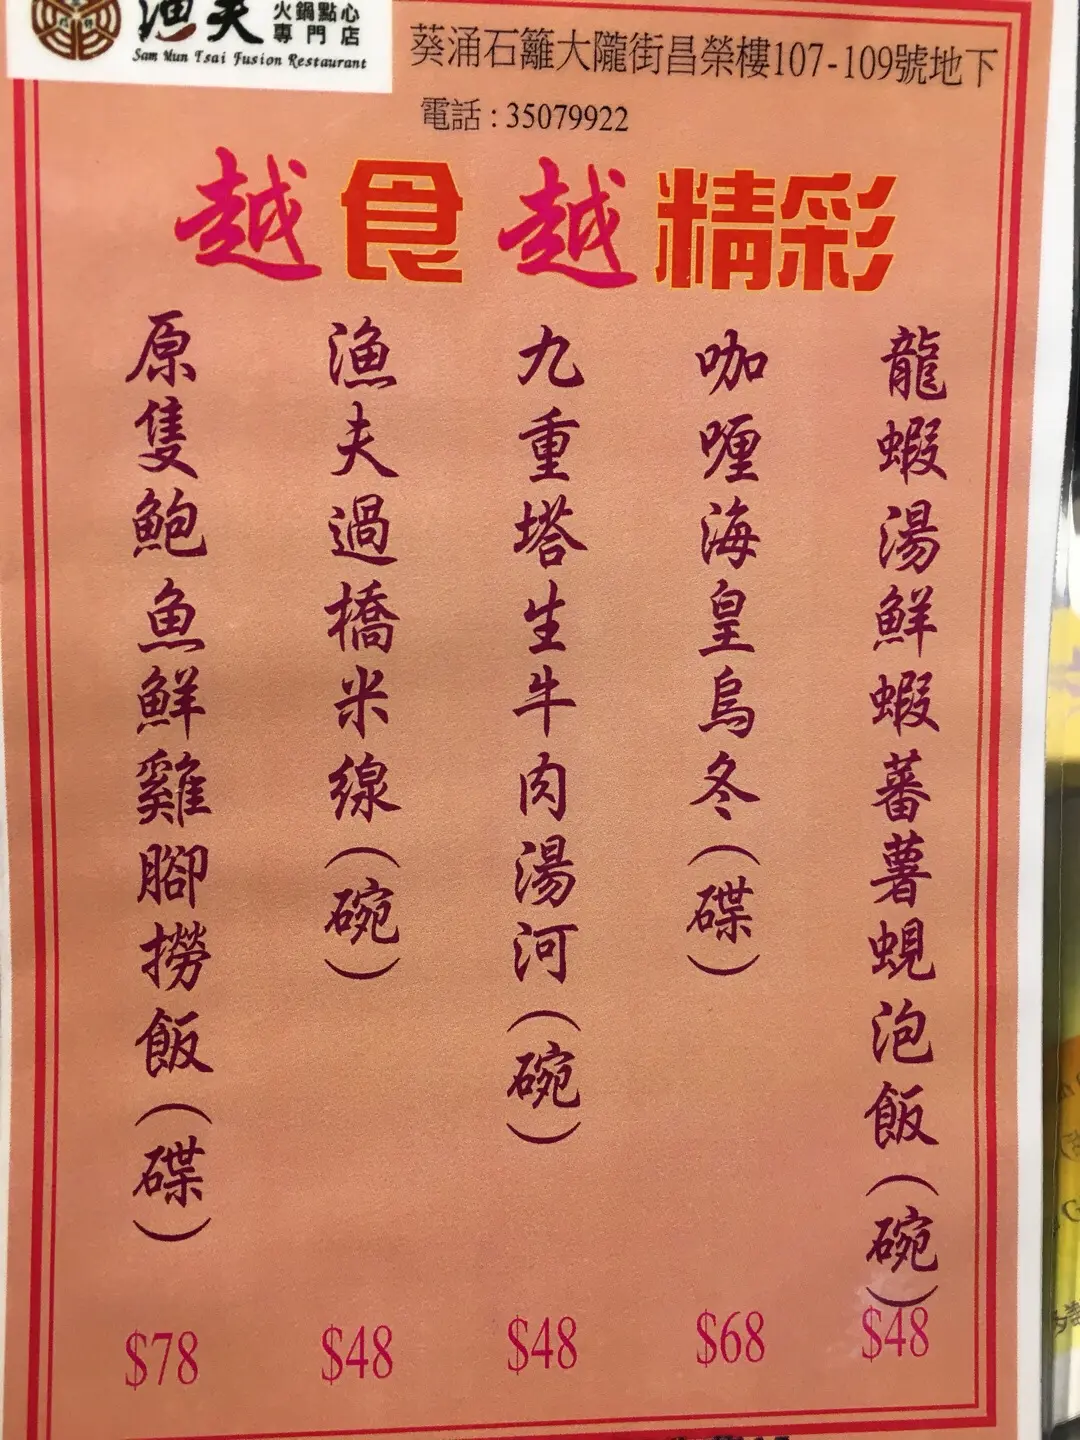 漁夫
火鍋點心
專門店
Sam Mun Tsai Fusion Restaurant
葵涌石籬大隴街昌榮樓107-109號地下
電話：35079922
越食越精彩
龍蝦湯鮮蝦蕃薯蜆泡飯（碗）
$48
咖喱海皇烏冬（碟）
$68
九重塔生牛肉湯河（碗）
$48
漁夫過橋米線（碗）
$48
原隻鮑魚鮮雞腳撈飯（碟）
$78